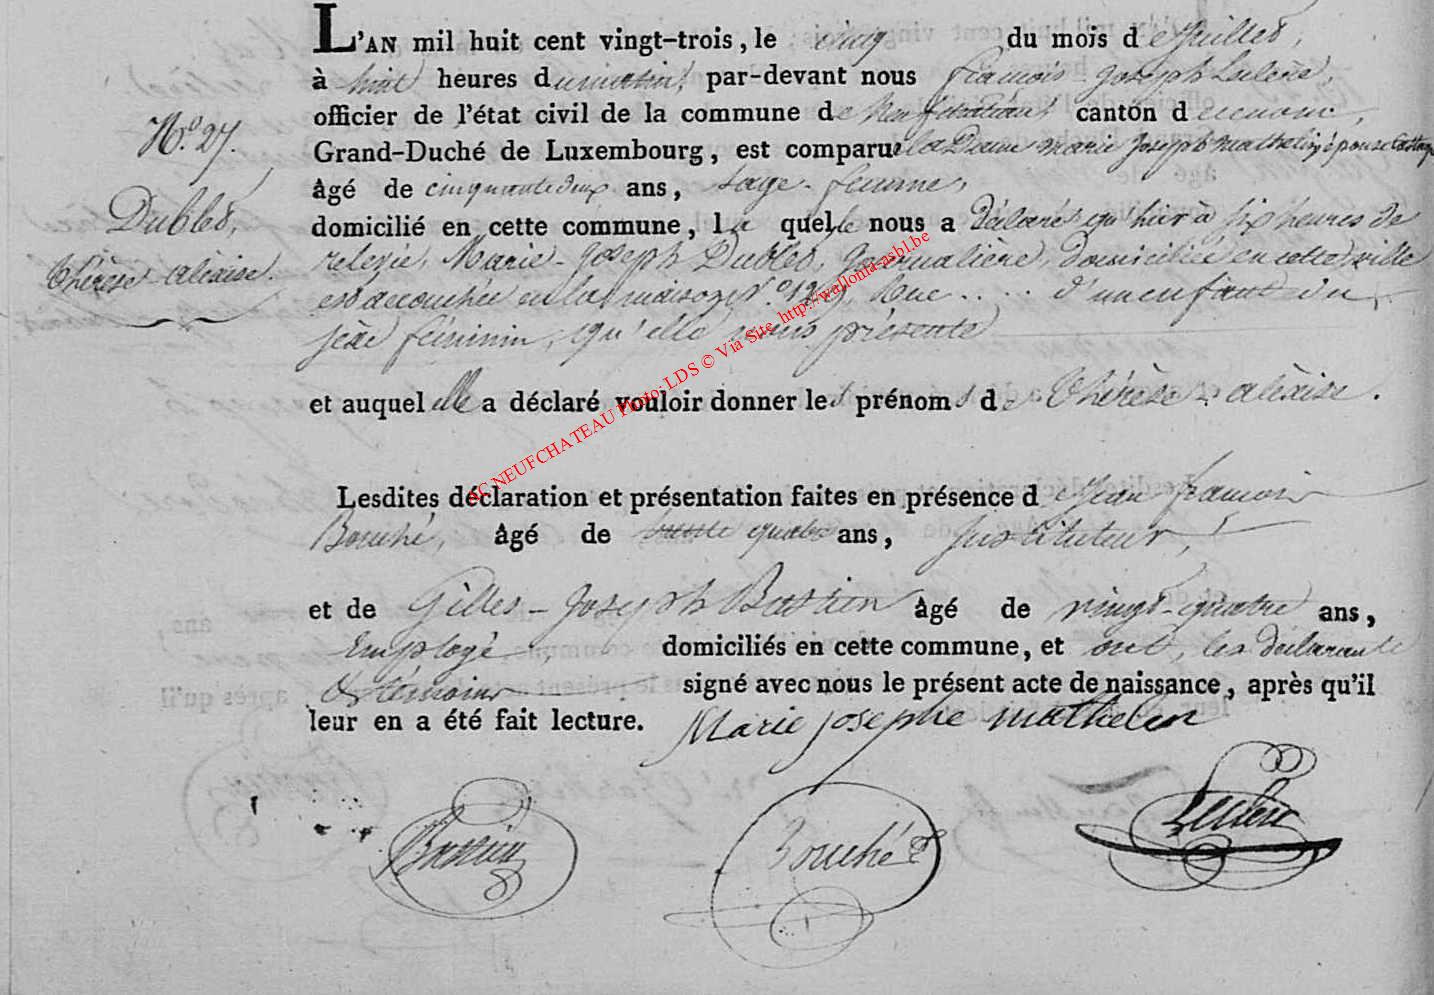 L'AN mil huit cent vingt-trois, le cinq du mois de Juillet,
à huit heures du matin, par-devant nous françois-Joseph Leclere,
officier de l'état civil de la commune de Neufchateau canton d
N.° 27.
Grand-Duché de Luxembourg, est comparue la Dame Marie Joseph mathelin, épouse
âgé de cinquante deux ans, Sage-femme,
Dubled,
domicilié en cette commune, la quelle nous a déclaré qu'hier à six heures de
thérèse alexise.
relevée, Marie-Joseph Dubled, Journalière, domiciliée en cette ville
est accouchée en la maison N.° Rue .... d'un enfant du
sexe féminin, qu'elle nous présente
et auquel elle a déclaré vouloir donner les prénoms de thérèse alexise.
Lesdites déclaration et présentation faites en présence de Jean françois
Bouché, âgé de trente quatre ans, Instituteur,
et de Gilles-Joseph Bastien âgé de vingt-quatre ans,
Employé, domiciliés en cette commune, et ont, les déclarante
et témoins signé avec nous le présent acte de naissance, après qu'il
leur en a été fait lecture. Marie josephe mathelin
Bastien Bouché Leclere
AC NEUFCHATEAU Photo: LDS © Via Site. http://wallonia-asbl.be